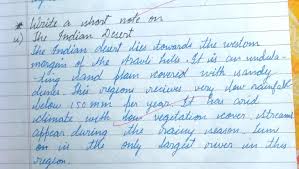 * Write a short note on
ii) The Indian Desert
The Indian desert lies towards the western
margins of the Aravali hills. It is an undula-
-ting sand plain covered with sandy
dunes. This region recives very low rainfall
below 150 mm per year. It has arid
climate with low vegetation cover. Streams
appear during the rainy season. Luni
on is the only largest river in this
region.